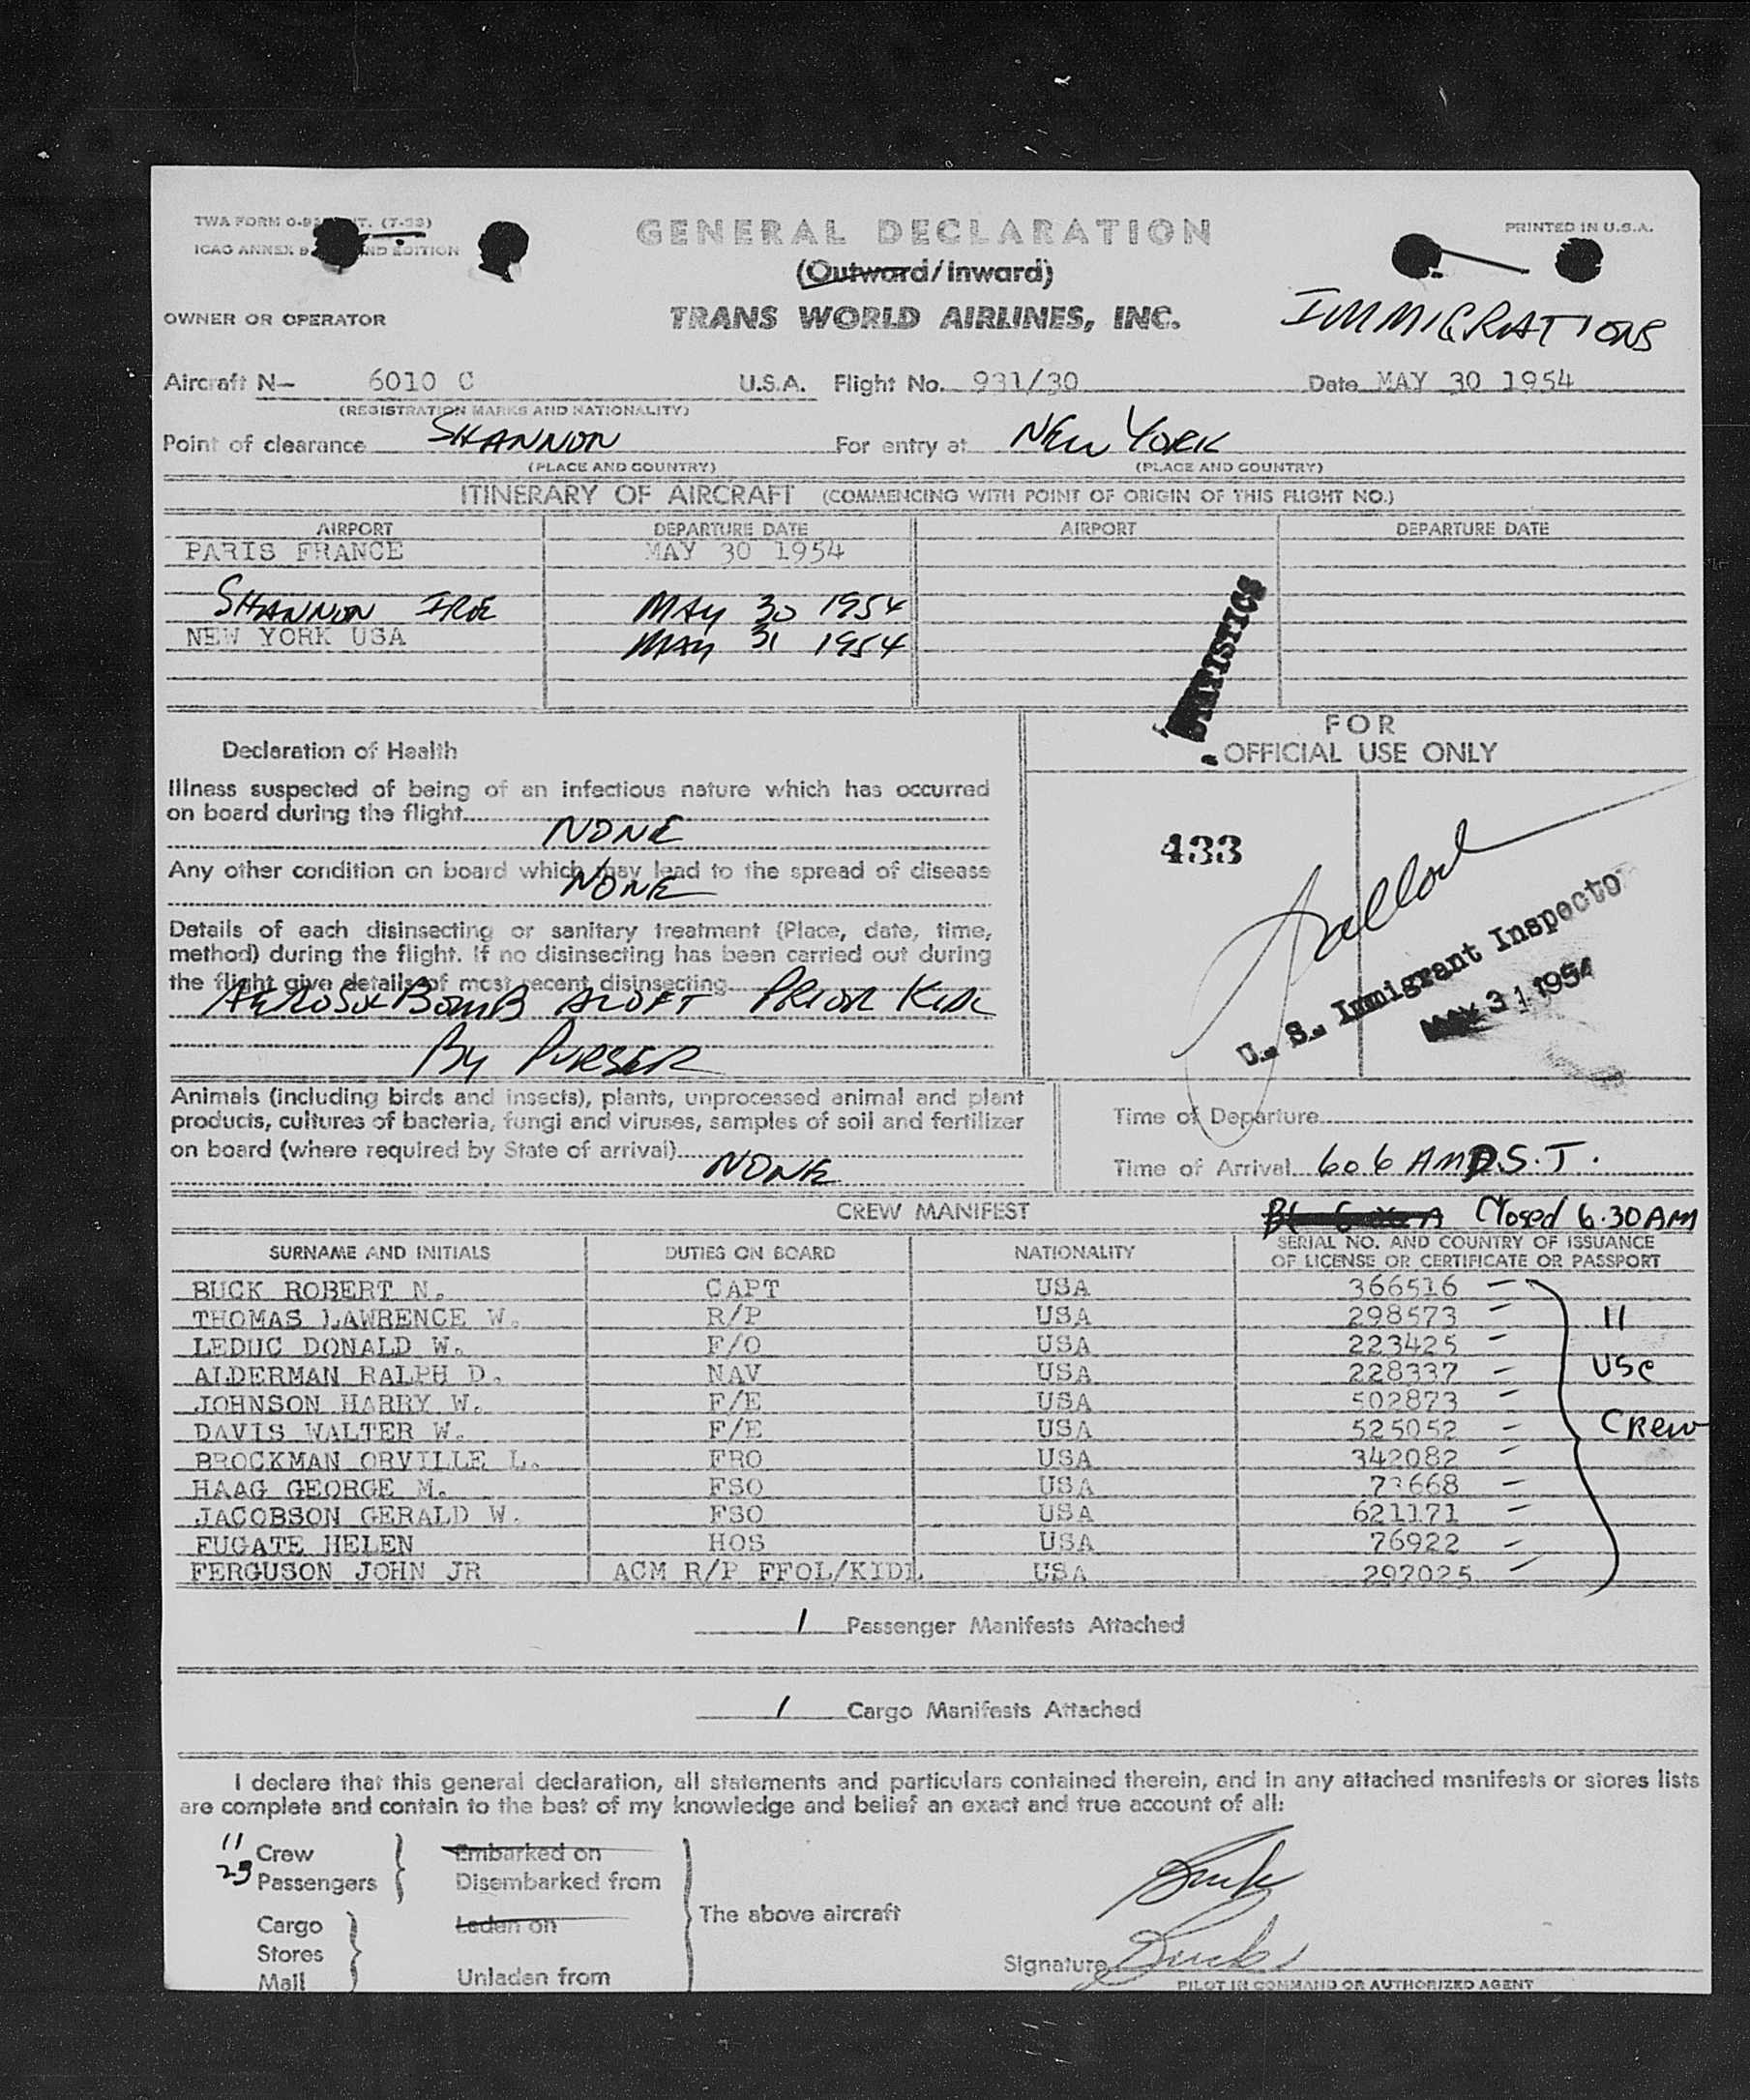 TWA FORM 0-9 T. (7-53)
ICAO ANNEX 9 ND EDITION
GENERAL DECLARATION
(Outward/Inward)
PRINTED IN U.S.A.
OWNER OR OPERATOR
TRANS WORLD AIRLINES, INC.
IMMIGRATIONS
Aircraft N- 6010 C U.S.A. Flight No. 931/30 Date MAY 30 1954
(REGISTRATION MARKS AND NATIONALITY)
Point of clearance SHANNON For entry at NEW YORK
(PLACE AND COUNTRY) (PLACE AND COUNTRY)
ITINERARY OF AIRCRAFT (COMMENCING WITH POINT OF ORIGIN OF THIS FLIGHT NO.)
AIRPORT DEPARTURE DATE AIRPORT DEPARTURE DATE
PARIS FRANCE MAY 30 1954
SHANNON IRE MAY 30 1954
NEW YORK USA MAY 31 1954
STATISTICS
Declaration of Health
Illness suspected of being of an infectious nature which has occurred
on board during the flight
NONE
Any other condition on board which may lead to the spread of disease
NONE
Details of each disinsecting or sanitary treatment (Place, date, time,
method) during the flight. If no disinsecting has been carried out during
the flight give details of most recent disinsecting
AEROSOL BOMB ALOFT PRIOR
By PURSER
FOR
OFFICIAL USE ONLY
433
U. S. Immigrant Inspector
MAY 31 1954
Animals (including birds and insects), plants, unprocessed animal and plant
products, cultures of bacteria, fungi and viruses, samples of soil and fertilizer
on board (where required by State of arrival)
NONE
Time of Departure
Time of Arrival 606 AM D.S.T.
CREW MANIFEST
Closed 6.30 AM
SURNAME AND INITIALS DUTIES ON BOARD NATIONALITY SERIAL NO. AND COUNTRY OF ISSUANCE
OF LICENSE OR CERTIFICATE OR PASSPORT
BUCK ROBERT N. CAPT USA 366516
THOMAS LAWRENCE W. R/P USA 298573
LEDUC DONALD W. F/O USA 223425
ALDERMAN RALPH D. NAV USA 228337
JOHNSON HARRY W. F/E USA 502873
DAVIS WALTER W. F/E USA 525052
BROCKMAN ORVILLE L. FRO USA 342082
HAAG GEORGE M. FSO USA 73668
JACOBSON GERALD W. FSO USA 621171
FUGATE HELEN HOS USA 76922
FERGUSON JOHN JR ACM R/P FFOL/KIDL USA 297025
11
USC
Crew
1 Passenger Manifests Attached
1 Cargo Manifests Attached
I declare that this general declaration, all statements and particulars contained therein, and in any attached manifests or stores lists
are complete and contain to the best of my knowledge and belief an exact and true account of all:
11 Crew
23 Passengers
Embarked on
Disembarked from
Cargo
Stores
Mail
Laden on
Unladen from
The above aircraft
Buck
Signature Buck
PILOT IN COMMAND OR AUTHORIZED AGENT